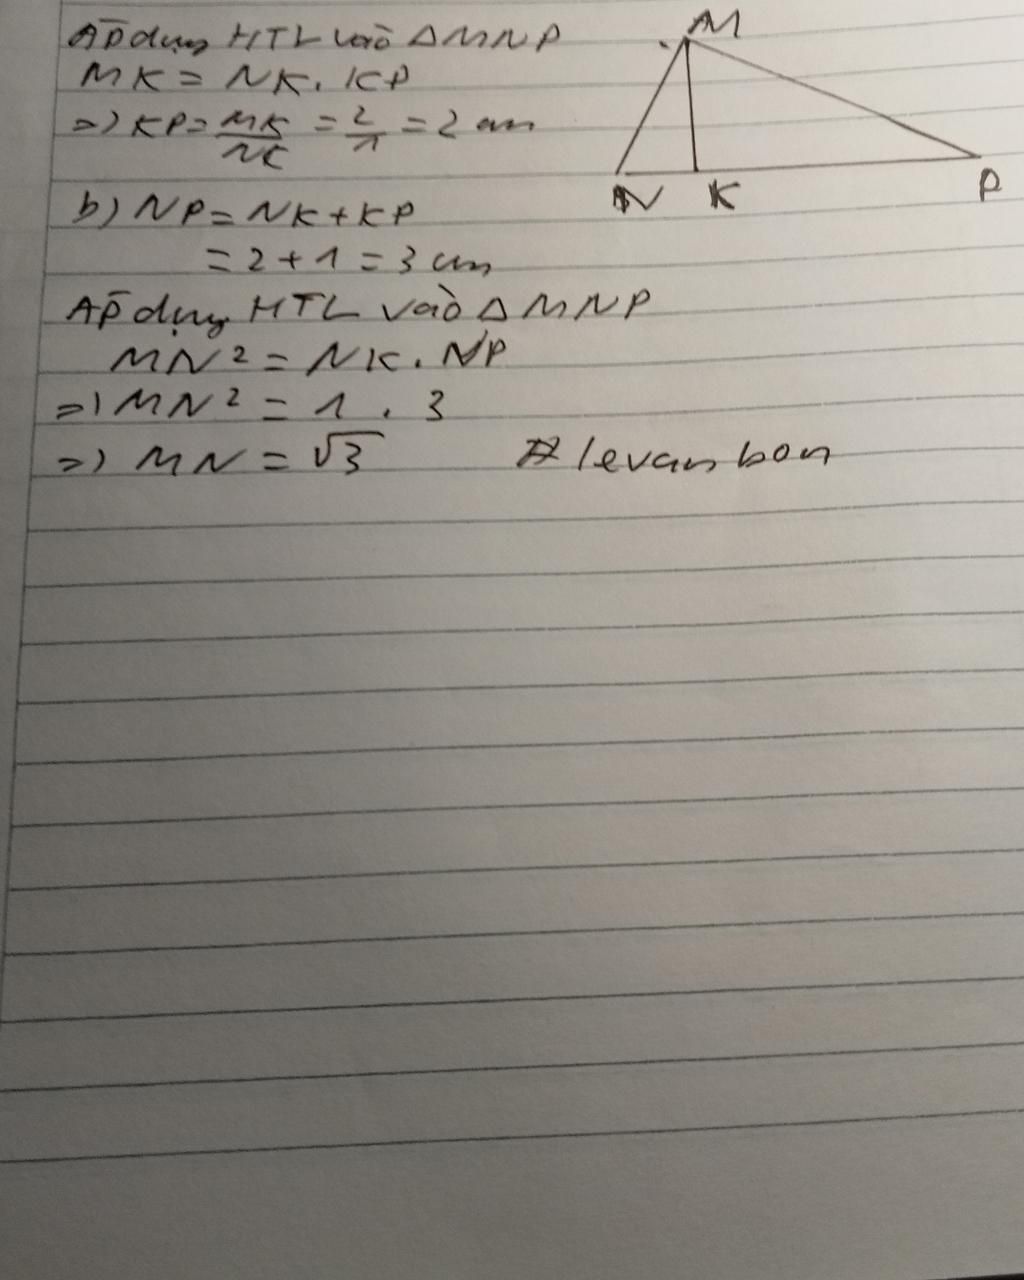 Áp dụng HTL vào ΔMNP
MK = NK. KP
=> KP = MK/NK = 2/1 = 2 cm
b) NP = NK + KP
= 2 + 1 = 3 cm
Áp dụng HTL vào Δ MNP
MN² = NK. NP
=> MN² = 1 . 3
=> MN = √3 # levanbon
M
N K P